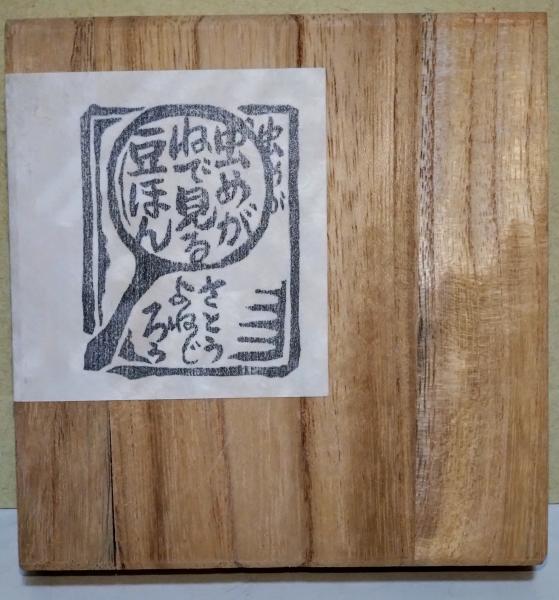 虫めが
虫めが
ねで見る
豆ほん
さとう
よねじ